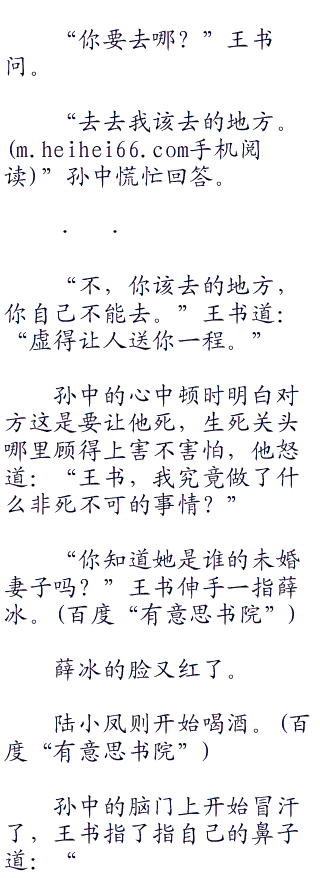 “你要去哪？”王书
问。
“去去我该去的地方。
(m.heihei66.com手机阅
读)”孙中慌忙回答。
. .
“不，你该去的地方，
你自己不能去。”王书道：
“虚得让人送你一程。”
孙中的心中顿时明白对
方这是要让他死，生死关头
哪里顾得上害不害怕，他怒
道：“王书，我究竟做了什
么非死不可的事情？”
“你知道她是谁的未婚
妻子吗？”王书伸手一指薛
冰。(百度“有意思书院”)
薛冰的脸又红了。
陆小凤则开始喝酒。(百
度“有意思书院”)
孙中的脑门上开始冒汗
了，王书指了指自己的鼻子
道：“